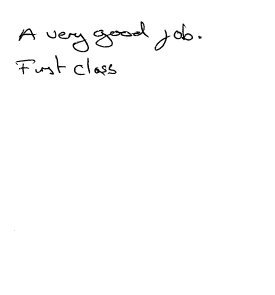 A very good job.
First class